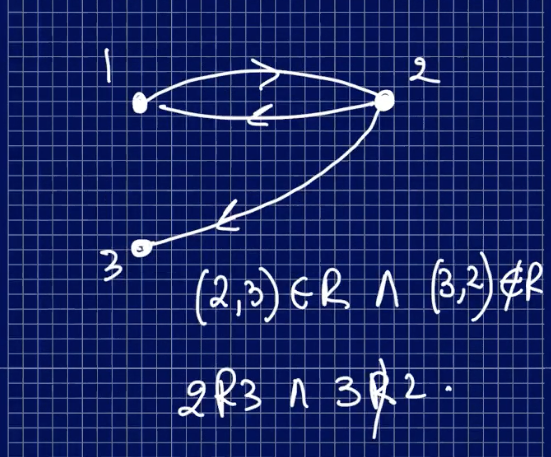 1 2
3
(2,3)∈R ∧ (3,2)∉R
2R3 ∧ 3R̸2.